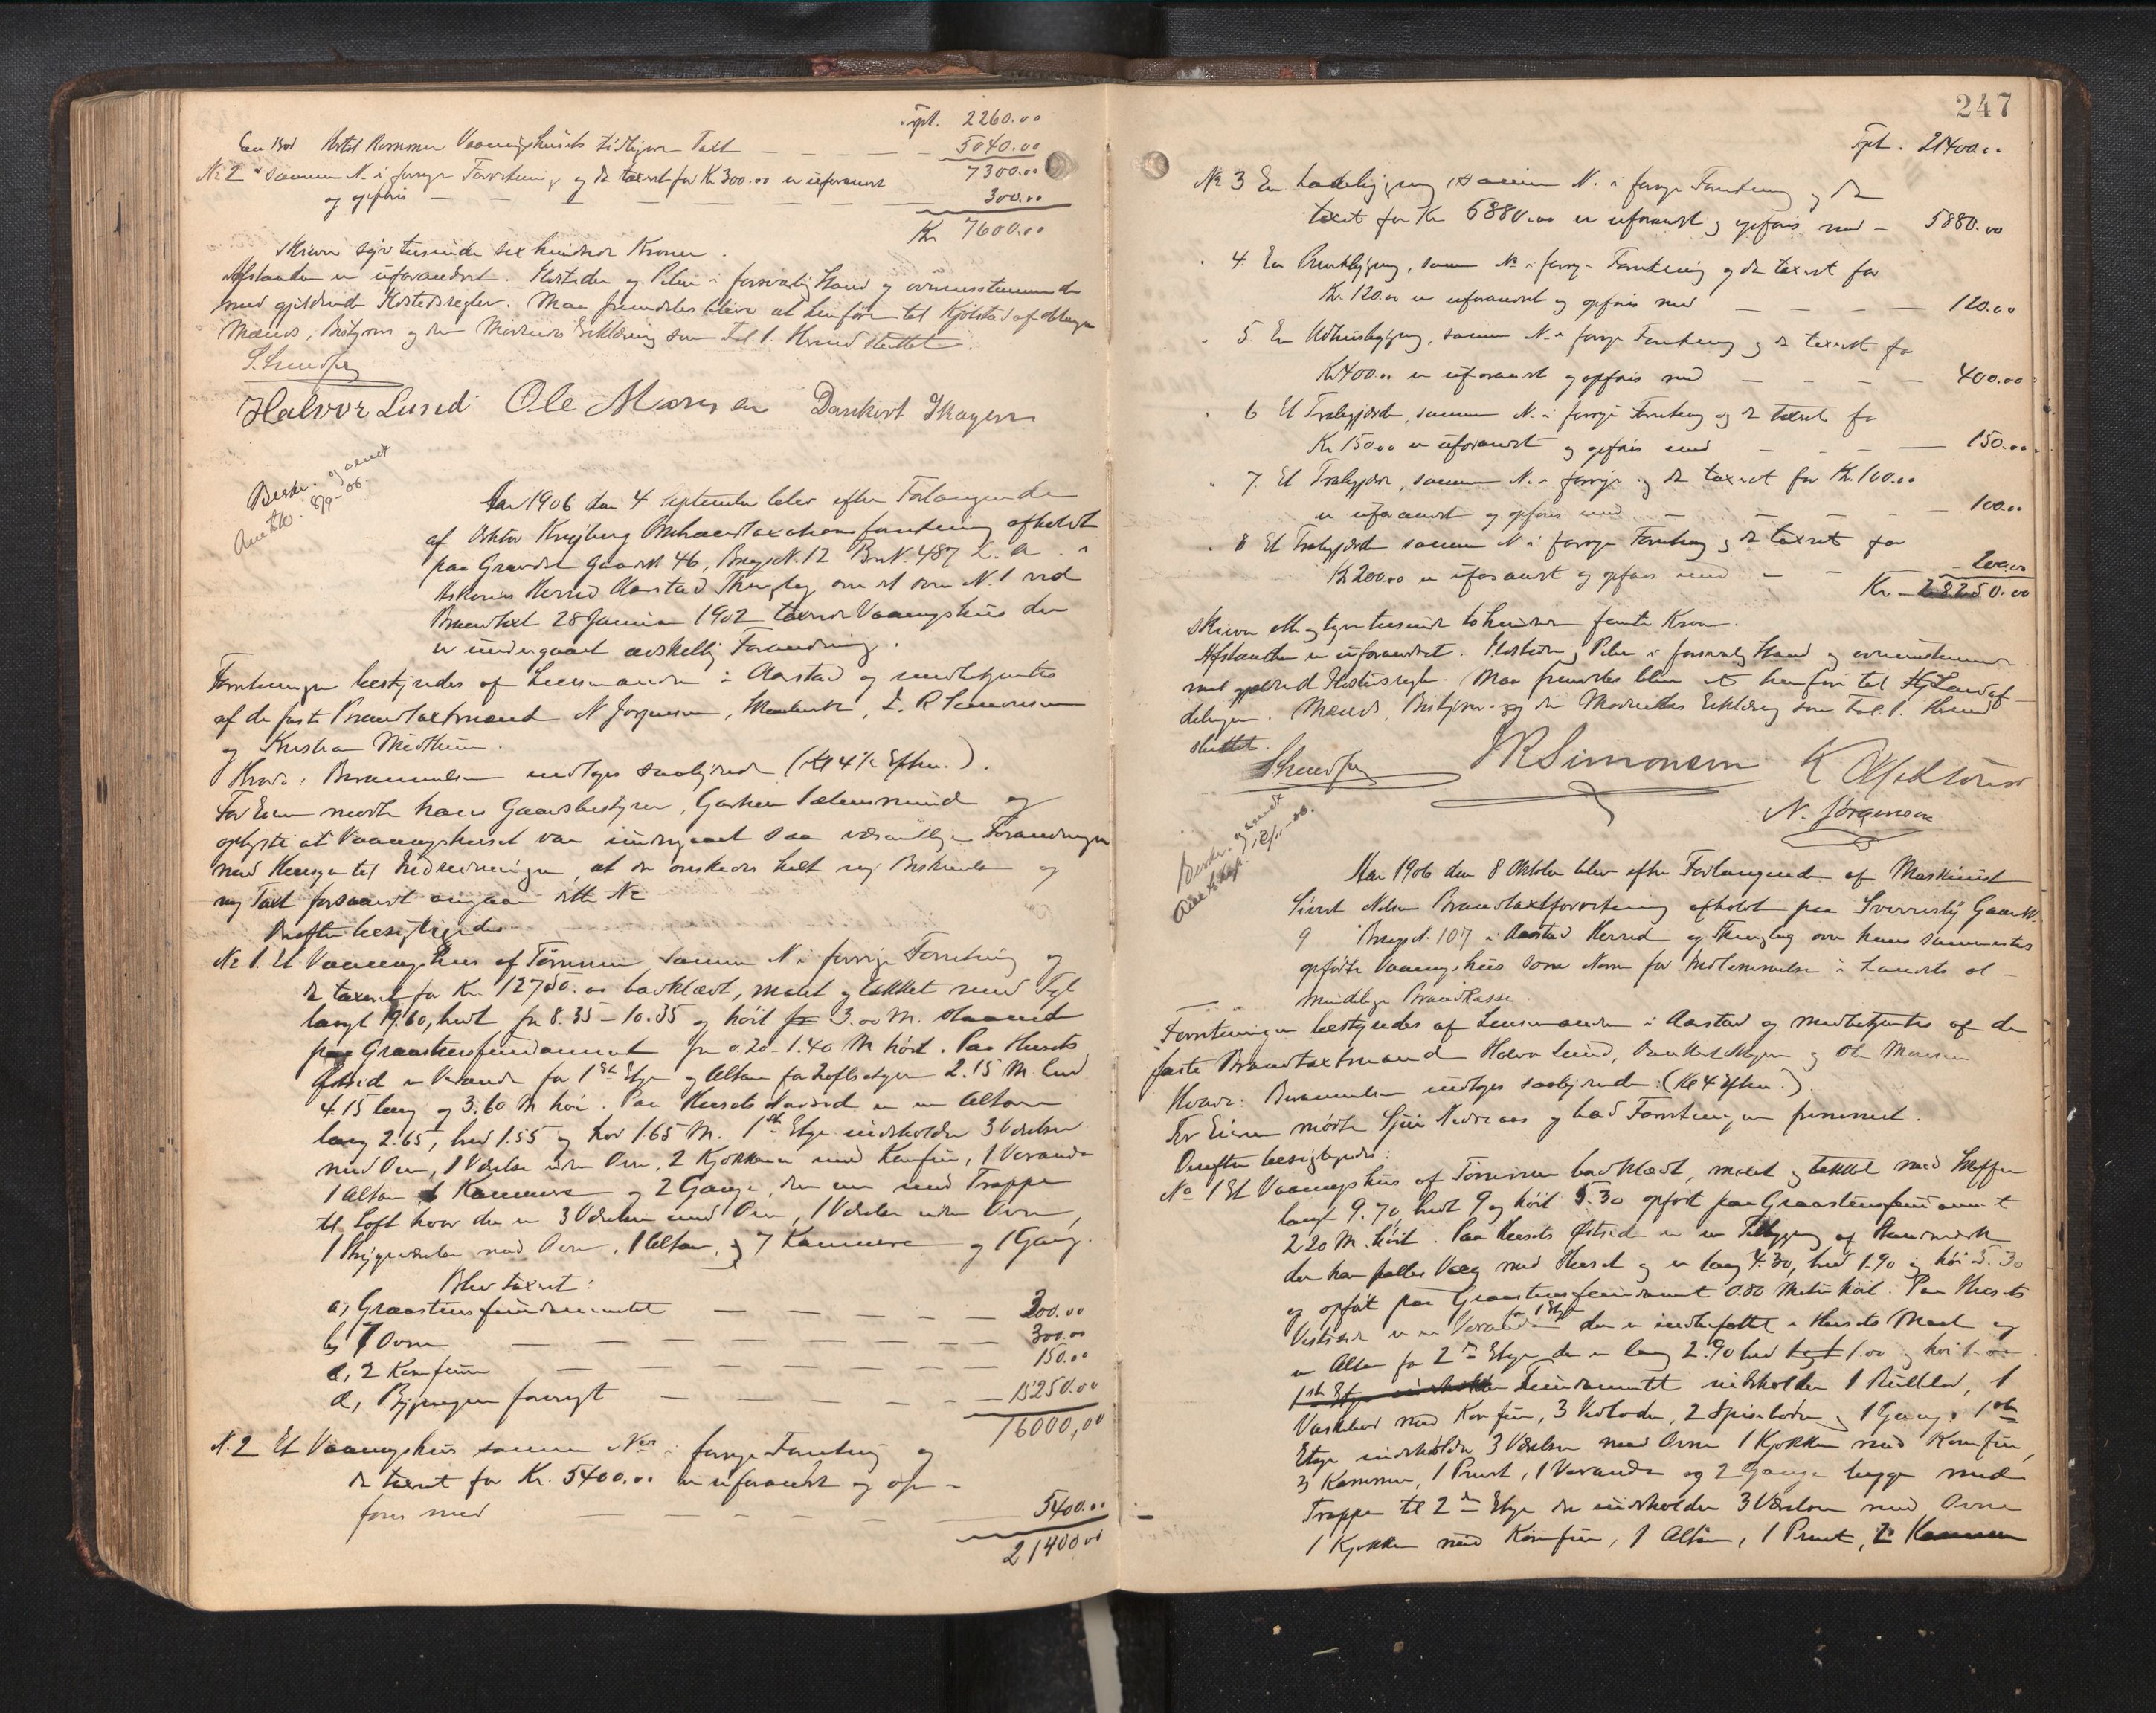 Tpt. 2260.00
Som No 1 Kostel Rommer Vaaningshusets tidligere Taxt — — — — 5040.00
7300.00
No 2 samme N. i forrige Forretning og da taxeret for Kr 300.00 er uforandret
og opføres — — — — — — 300.00
Kr 7600.00
skriver syv tusinde sex hundrede Kroner.
Afstanden er uforandret. Ildsteder og Piber i forsvarlig Stand og overensstemmende
med gjeldende Ildstedsregler. Maa fremdeles blive at henføre til Kjøbstadafdelingen
Mænds, Bestyrers og den Mødendes Erklæring som Fol 1. Hermed sluttet.
Halvor Lund Ole Monsen Dankert Skagen
Beskr. og sendt
8/9-06.
Aar 1906 den 4 September blev efter Forlangende
af Doktor Krejberg Omhandtaxationsforretning afholdt
paa Gaards N. 46, Brugs N. 12 Br. N. 487 L. a.
Herred Aarstad Thinglag over det som N. 1 ved
Brandtaxt 28 Januar 1902 taxerede Vaaningshus der
er undergaaet adskellig Forandring.
Forretningen bestyredes af Lensmanden i Aarstad og medbetjentes
af de faste Brandtaxtmænd N Jørgensen, I. R Simonsen
og Kristian Midttun.
Hvor: Berammelsen indtoges saalydende (Kl 4 1/2 Efterm.).
For Eieren mødte hans Gaardsbestyrer, Gartner og
oplyste at Vaaningshuset var undergaaet saa væsentlige Forandringer
med Hensyn til Indredningen, at der ønskedes helt ny Beskrivelse og
ny Taxt forsaavidt angaar dette No
Derefter besigtigedes
No 1. Et Vaaningshus af Tømmer samme N i forrige Forretning og
da taxeret for Kr. 12750.00 bordklædt, malet og tækket med Tegl
langt 19.60, bredt fra 8.35 – 10.35 og høit 3.00 M. staaende
paa Graastensfundament fra 0.20 – 1.40 M høit. Paa Husets
Østsid er Veranda for 1ste Etage og Altan for Loftsetagen 2.15 M bred
4.15 lang og 3.60 M høi. Paa Husets Nordsid er en Altan
lang 2.65, bred 1.55 og høi 1.65 M. 1ste Etage indeholder 3 Værelser
med Ovn, 1 Værelse uden Ovn, 2 Kjøkkener med Komfur, 1 Veranda
1 Altan, 6 Kammere og 2 Gange, den ene med Trappe
til Loft hvor der er 3 Værelser med Ovn, 1 Værelse uden Ovn,
1 Strygeværelse med Ovn, 1 Altan, og 7 Kammere og 1 Gang.
Blev taxeret:
a, Graastensfundamentet — — — — 300.00
b, 7 Ovne — — — — — 300.00
c, 2 Komfure — — — — — 150.00
d, Bygningen forøvrigt — — — — 15250.00
16000,00
N. 2 Et Vaaningshus samme No i forrige Forretning og
da taxeret for Kr. 5400.00 er uforandret og op-
føres med — — — — — 5400.00
21400.00
247
Tpt. 21400.00
No 3 En Ladebygning samme N. i forrige Forretning og da
taxeret for Kr 5880.00 er uforandret og opføres med — 5880.00
4. En bygning, samme No i forrige Forretning og da taxeret for
Kr. 120.00 er uforandret og opføres med — — — — 120.00
5. En Udhusbygning, samme N. i forrige Forretning og da taxeret for
Kr 400.00 er uforandret og opføres med — — — — 400.00
6 Et Træhjeld, samme N. i forrige Forretning og da taxeret for
Kr 150.00 er uforandret og opføres med — — — 150.00
7. Et samme N. i forrige og da taxeret for Kr. 100.00
er uforandret og opføres med — — — — 100.00
8 Et samme N i forrige Forretning og da taxeret for
Kr 200.00 er uforandret og opføres med — — 200.00
Kr — 28250.00
skriver otte og tyve tusende to hundrede femti Kroner.
Afstanden er uforandret. Ildsteder og Piber i forsvarlig Stand og overensstemmende
med gjeldende Ildstedsregler. Maa fremdeles blive at henføre til Landaf-
delingen. Mænds, Bestyrers og den Mødendes Erklæring som Fol. 1. Hermed
sluttet.
I R Simonsen K Midttun
N. Jørgensen
Beskr. og sendt
Aar 1906 den 8 Oktober blev efter Forlangende af Maskinist
Sivert Nilsen Brandtaxtforretning afholdt paa Sverresly Gaards N.
9 Brugs N. 107 i Aarstad Herred og Thinglag over hans sammesteds
opførte Vaaningshus som Norm for Indlemmelse i Landets al-
mindelige Brandkasse.
Forretningen bestyredes af Lensmanden i Aarstad og medbetjentes af de
faste Brandtaxtmænd Halvor Lund, Dankert Skagen og Ole Monsen
Hvor: Berammelsen indtoges saalydende: (Kl 4 Efterm.).
For Eieren mødte Nedreaas og bad Forretningen fremmet.
Derefter besigtigedes:
No 1 Et Vaaningshus af Tømmer bordklædt, malet og tækket med Skiffer
langt 9.70, bredt 9 og høit 5.30 opført paa Graastensfundament
2.20 M. høit. Paa Husets Østside er en Tilbygning af Standværk
der har fælles Væg med Huset og er lang 4.30, bred 1.90 og høi 5.30
og opført paa Graastensfundament 0.80 Meter høit. Paa Husets
Vestside er en Veranda for 1 Etage der er indbefattet i Husets Maal og
en Altan for 2den Etage der er lang 2.90 bred 1.00 og høi 1.00.
Fundamentet indeholder 1 Rullebod, 1
Vaskebod med Komfur, 3 Vedboder, 2 Spiseboder og 1 Gang. 1ste
Etage indeholder 3 Værelser med Ovne 1 Kjøkken med Komfur,
3 Kammer, 1 Privet, 1 Veranda og 2 Gange begge med
Trappe til 2den Etage der indeholder 3 Værelser med Ovne
1 Kjøkken med Komfur, 1 Altan, 1 Privet, 2 Kammer